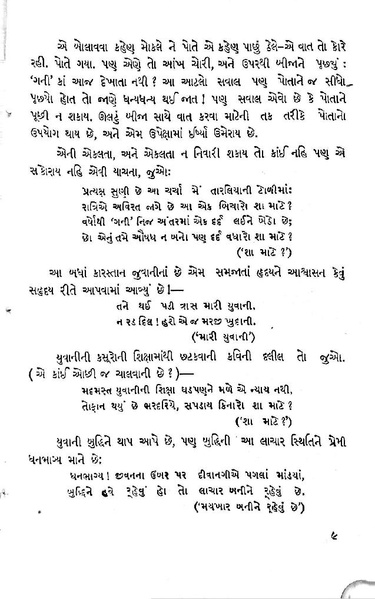 એ બોલાવવા કહેણ મોકલે ને પોતે એ કહેણ પાછું ઠેલે–એ વાત તો કોરે
રહી. પોતે ગયા. પણ એણે તો આંખ ચોરી, અને ઉપરથી બીજાને પૂછ્યું :
‘ગની’ કાં આજ દેખાતા નથી ? આ આટલો સવાલ પણ પોતાને જ સીધો
પૂછ્યો હોત તો જાણે ધન્યધન્ય થઈ જાત ! પણ સવાલ એવો છે કે પોતાને
પૂછી ન શકાય. ઊલટું બીજા સાથે વાત કરવા માટેની તક તરીકે પોતાનો
ઉપયોગ થાય છે, અને એમ ઉપેક્ષામાં ઈર્ષ્યા ઉમેરાય છે.
એની એકલતા, અને એકલતા ન નિવારી શકાય તો કાંઈ નહિ પણ એ
સકોરાય નહિ એવી યાચના, જુઓ:
પ્રત્યક્ષ સુણી છે આ ચર્ચા મેં તારલિયાની ટોળીમાં:
રાત્રિએ અવિરત જાગે છે આ એક બિચારો શા માટે ?
વર્ષોથી ‘ગની’ નિજ અંતરમાં એક દર્દ લઈને બેઠો છે;
છો એનું તમે ઔષધ ન બનો પણ દર્દ વધારો શા માટે ?
(‘શા માટે ?’)
આ બધાં કારસ્તાન જુવાનીનાં છે એમ સમજાતાં હૃદયને આશ્વાસન કેવું
સહૃદય રીતે આપવામાં આવ્યું છે !—
તને થઈ પડી ત્રાસ મારી યુવાની.
ન રડ દિલ ! હશે એ જ મરજી ખુદાની.
(‘મારી યુવાની’)
યુવાનીની કસૂરોની શિક્ષામાંથી છટકવાની કવિની દલીલ તો જુઓ.
( એ કાંઈ ઓછી જ ચાલવાની છે ? )—
મદમસ્ત યુવાનીની શિક્ષા ઘડપણને મળે એ ન્યાય નથી,
તોફાન થયું છે ભરદરિયે, સપડાય કિનારો શા માટે ?
(‘શા માટે ?’)
યુવાની બુદ્ધિને થાપ આપે છે, પણ બુદ્ધિની આ લાચાર સ્થિતિને પ્રેમી
ધનભાગ્ય માને છે:
ધનભાગ્ય ! જીવનના ઉંબર પર દીવાનગીએ પગલાં માંડયાં,
બુદ્ધિને હવે રહેવું હો તો લાચાર બનીને રહેવું છે.
(‘મયખાર બનીને રહેવું છે’)
૯